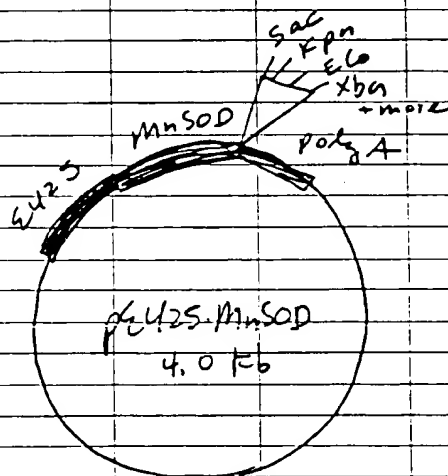 Sac
Kpn
Eco
Xba
+ more
MnSOD
poly A
E425
pE425·MnSOD
4.0 Kb